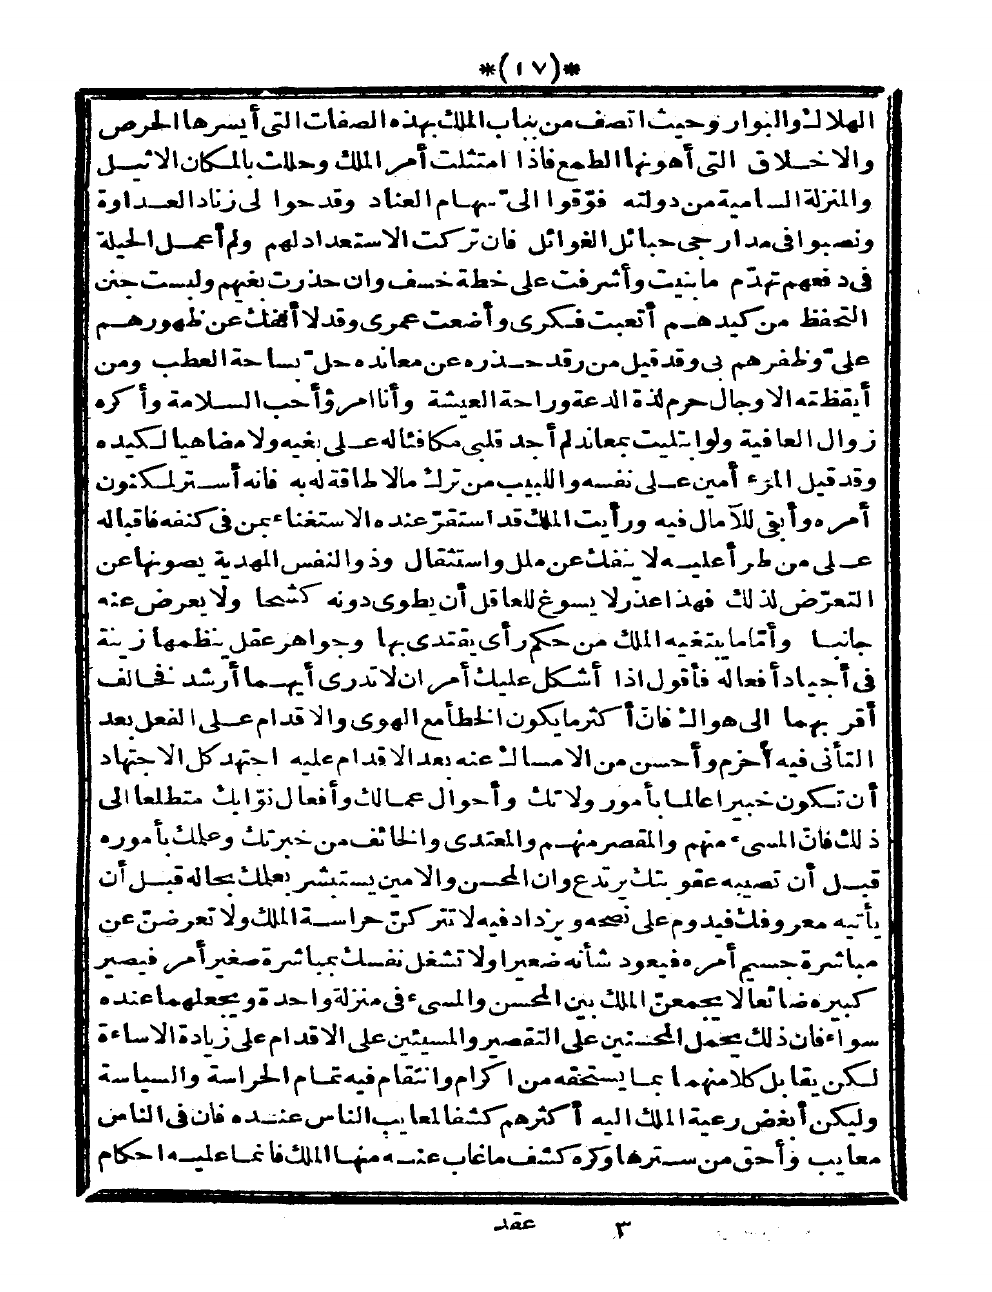 *(١٧)*
الهلاك والبوار وحيث اتصف من بباب الملك بهذه الصفات التى أيسرها الحرص
والاخلاق التى أهونها الطمع فاذا امتثلت أمر الملك وحللت بالمكان الاثيل
والمنزلة السامية من دولته فوّقوا الىّ سهام العناد وقدحوا لى زناد العداوة
ونصبوا فى مدارجى حبائل الغوائل فان تركت الاستعداد لهم ولم أعمل الحيلة
فى دفعهم تهدّم ما بنيت وأشرفت على خطة خسف وان حذرت بغيهم ولبست جنن
التحفظ من كيدهم أتعبت فكرى وأضعت عمرى وقد لا أنفك عن ظهورهم
علىّ وظفرهم بى وقد قيل من رقد حذره عن معانده حلّ بساحة العطب ومن
أيقظته الاوجال حرم لذة الدعة وراحة العيشة وأنا امرؤ أحب السلامة وأكره
زوال العافية ولو ابتليت بمعاند لم أجد قلبى مكافئا له على بغيه ولا مضاهيا لكيده
وقد قيل المرء أمين على نفسه واللبيب من ترك مالا طاقة له به فانه أستر لمكنون
أمره وأبقى للآمال فيه ورأيت الملك قد استقرّ عنده الاستغناء بمن فى كنفه فاقباله
على من طرأ عليه لا ينفك عن ملل واستثقال وذو النفس المهدية يصونها عن
التعرّض لذلك فهذا عذر لا يسوغ للعاقل أن يطوى دونه كشحا ولا يعرض عنه
جانبا وأمّا ما يبتغيه الملك من حكم رأى يقتدى بها وجواهر عقل ينظمها زينة
فى أجياد أفعاله فأقول اذا أشكل عليك أمران لا تدرى أيهما أرشد فخالف
أقربهما الى هواك فانّ أكثر ما يكون الخطأ مع الهوى والاقدام على الفعل بعد
التأنى فيه أحزم وأحسن من الامساك عنه بعد الاقدام عليه اجتهد كل الاجتهاد
أن تكون خبيرا عالما بأمور ولاتك وأحوال عمالك وأفعال نوّابك متطلعا الى
ذلك فانّ المسىء منهم والمقصر منهم والمعتدى والخائف من خبرتك وعلمك بأموره
قبل أن تصيبه عقوبتك يرتدع وان المحسن والامين يستبشر بعلمك بحاله قبل أن
يأتيه معروفك فيدوم على نصحه ويزداد فيه لا تتركنّ حراسة الملك ولا تعرضنّ عن
مباشرة جسيم أمره فيعود شأنه ضعيرا ولا تشغل نفسك بمباشرة صغير أمر فيصير
كبيره ضائعا لا يجمعنّ الملك بين المحسن والمسىء فى منزلة واحدة ويجعلهما عنده
سواء فان ذلك يحمل المحسنين على التقصير والمسيئين على الاقدام على زيادة الاساءة
لكن يقابل كلا منهما بما يستحقه من اكرام وانتقام فيه تمام الحراسة والسياسة
وليكن أبغض رعية الملك اليه أكثرهم كشفا لمعايب الناس عنده فان فى الناس
معايب وأحق من سترها وكره كشف ما غاب عنه منها الملك فانما عليه احكام
٣ عقد